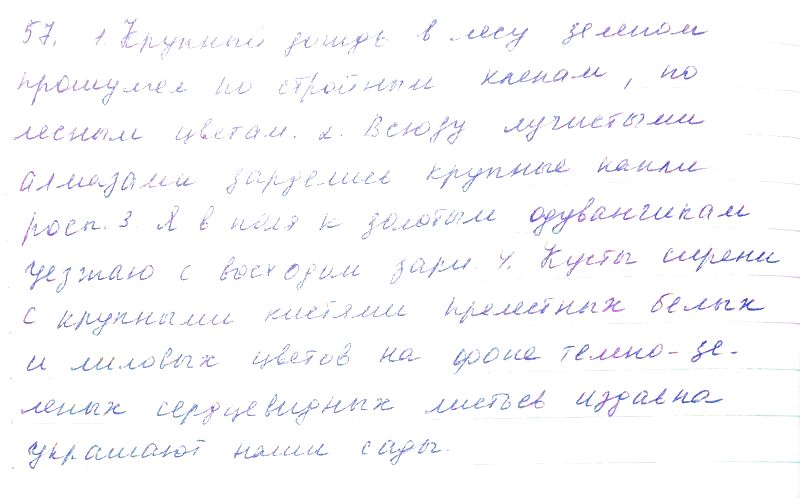 57. 1. Крупный дождь в лесу зеленом
прошумел по стройным кленам, по
лесным цветам. 2. Всюду лучистыми
алмазами зарделись крупные капли
росы. 3. Я в поля к золотым одуванчикам
уезжаю с восходом зари. 4. Кусты сирени
с крупными кистями прелестных белых
и лиловых цветов на фоне темно-зе-
леных сердцевидных листьев издавна
украшают наши сады.